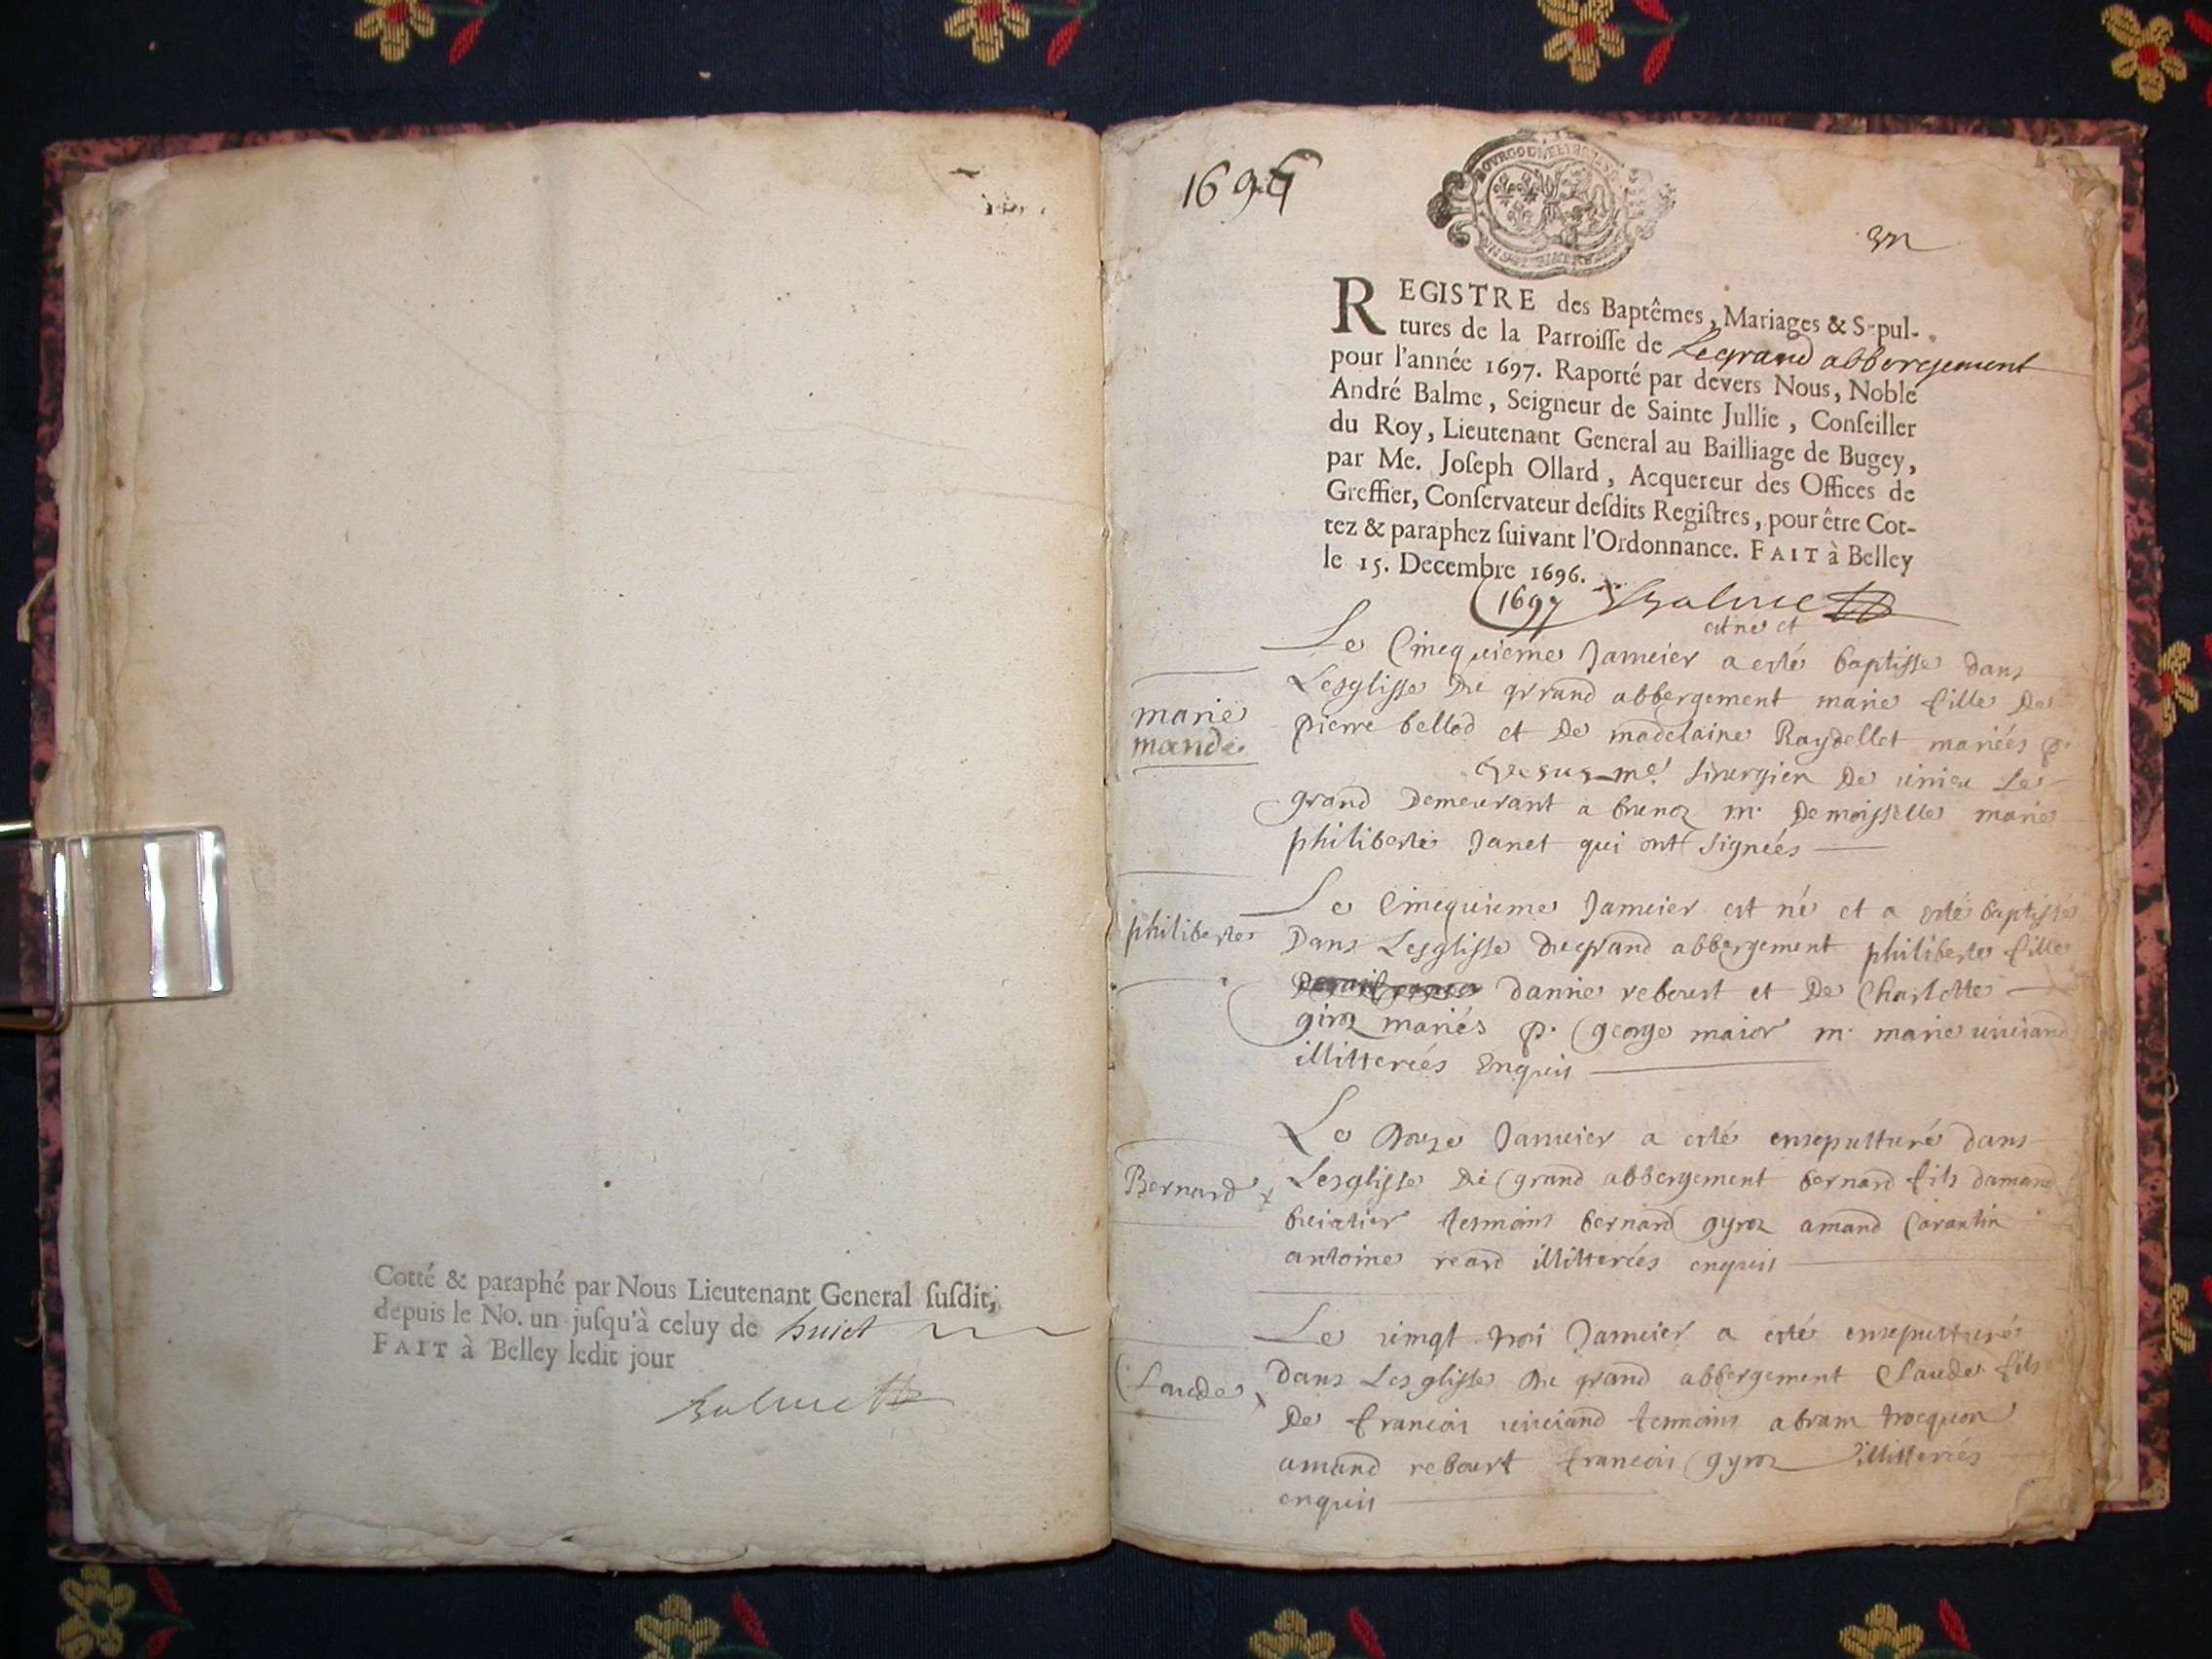 Cotté & paraphé par Nous Lieutenant General susdit,
depuis le No. un jusqu'à celuy de huict
FAIT à Belley ledit jour
Balme
1697
REGISTRE des Baptêmes, Mariages & Sepul-
tures de la Parroisse de Legrand abbergement
pour l'année 1697. Raporté par devers Nous, Noble
André Balme, Seigneur de Sainte Jullie, Conseiller
du Roy, Lieutenant General au Bailliage de Bugey,
par Me. Joseph Ollard, Acquereur des Offices de
Greffier, Conservateur desdits Registres, pour être Cot-
tez & paraphez suivant l'Ordonnance. FAIT à Belley
le 15. Decembre 1696.
1697 Balme
est nee et
Le Cinequieme Janueier a esté baptisse dans
Lesglisse du grrand abbergement marie fille de
pierre bellod et de madelaine Raydellet mariées p.
marie
grand demeurant a m. demoisselle marie
philiberte Janet qui ont signées
Le Cinequieme Janueier est né et a esté baptissé
philiberte
Dans Lesglisse du grand abbergement philiberte fille
reboust et de Charlotte
giroz mariés p. george maior m. marie
illitterées enquis
Le douze Janueier a esté ensepulturé dans
Bernard
Lesglisse du grand abbergement bernard fils damand
tesmoins bernard gyroz amand Carantin
antoine illitterées enquis
Le uingt troi Janueier a esté ensepulturé
Claude
dans Lesglisse du grand abbergement Claude fils
De francois tesmoins abram
amand reboust francois gyroz illitterées
enquis